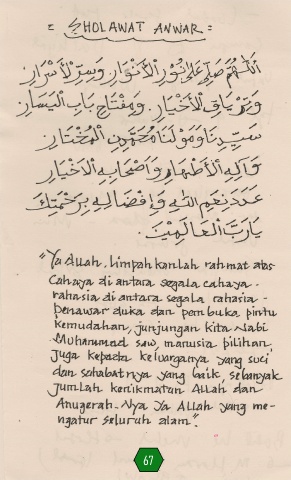 = SHOLAWAT ANWAR =
اَللّٰهُمَّ صَلِّ عَلَى نُوْرِ الْأَنْوَارِ وَسِرِّ الْأَسْرَارِ
وَتِرْيَاقِ الْأَخْيَارِ وَمِفْتَاحِ بَابِ الْيَسَارِ
سَيِّدِنَا وَمَوْلَنَا مُحَمَّدِنِ الْمُخْتَارِ
وَآلِهِ الْأَطْهَارِ وَاَصْحَابِهِ الْاَخْيَارِ
عَدَدَ نِعَمِ اللهِ وَإِفْضَالِهِ بِرَحْمَتِكَ
يَارَبَّ الْعَالَمِيْنَ.
"Ya Allah, limpahkanlah rahmat atas
Cahaya di antara segala cahaya.
rahasia di antara segala rahasia -
Penawar duka dan pembuka pintu
kemudahan, junjungan kita Nabi
Muhammad saw, manusia pilihan
juga kepada keluarganya yang suci
dan sahabatnya yang baik, sebanyak
jumlah kenikmatan Allah dan
Anugerah-Nya Ya Allah yang me-
ngatur seluruh alam".
67